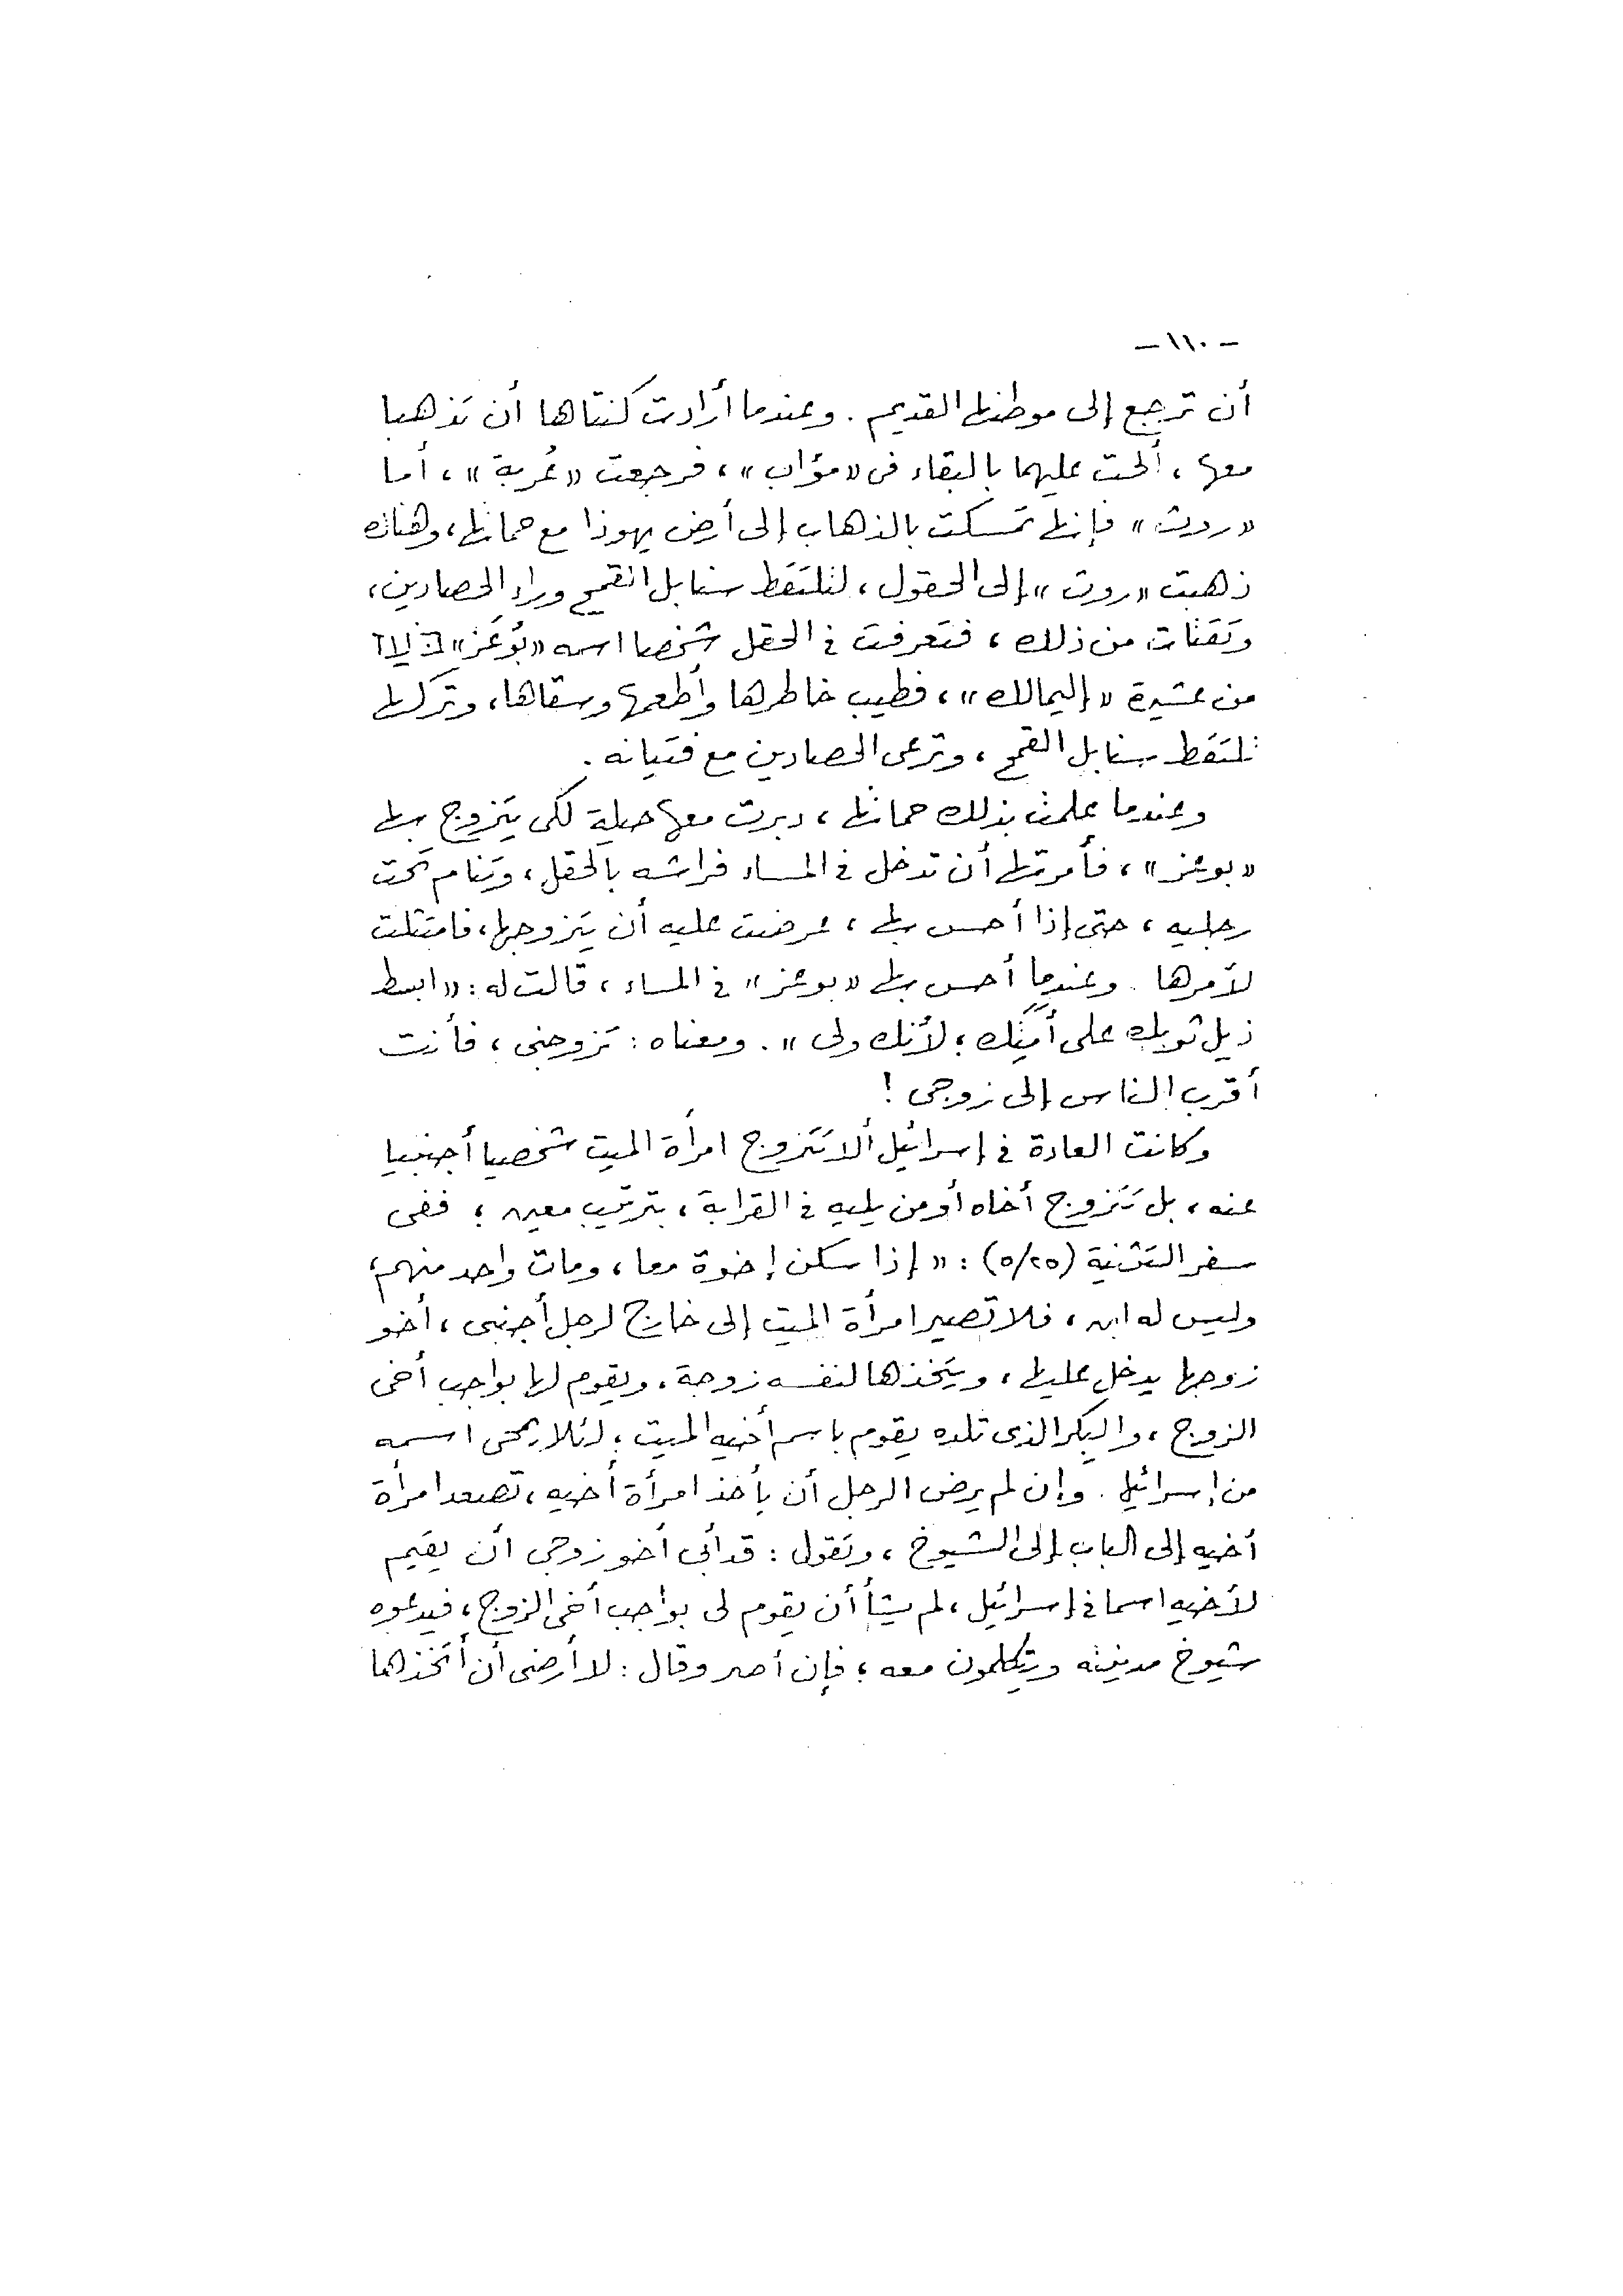 - ١١٠ -
أن ترجع إلى موطنها القديم . وعندما أرادت كنتاها أن تذهبا
معها ، ألحت عليهما بالبقاء فى «مؤاب» ، فرجعت «عُربة» ، أما
«روث» فإنها تمسكت بالذهاب إلى أرض يهوذا مع حماتها ، وهناك
ذهبت «روث» إلى الحقول ، لتلتقط سنابل القمح وراء الحصادين ،
وتقتات من ذلك ، فتعرفت فى الحقل شخصا اسمه «بُوعَز»
من عشيرة «إليمالك» ، فطيب خاطرها وأطعمها وسقاها ، وتركها
تلتقط سنابل القمح ، وترعى الحصادين مع فتيانه .
وعندما علمت بذلك حماتها ، دبرت معها حيلة لكى يتزوج بها
«بوعز» ، فأمرتها أن تدخل فى المساء فراشه بالحقل ، وتنام تحت
رجليه ، حتى إذا أحس بها ، عرضت عليه أن يتزوجها ، فامتثلت
لأمرها . وعندما أحس بها «بوعز» فى المساء ، قالت له : «ابسط
ذيل ثوبك على أمتك ؛ لأنك ولى» . ومعناه : تزوجنى ، فأنت
أقرب الناس إلى زوجى !
وكانت العادة فى إسرائيل ألا تتزوج امرأة الميت شخصيا أجنبيا
عنه ، بل تتزوج أخاه أو من يليه فى القرابة ، بترتيب معين ؛ ففى
سفر التثنية (٥/٢٥) : «إذا سكن إخوة معا ، ومات واحد منهم ،
وليس له ابن ، فلا تصير امرأة الميت إلى خارج لرجل أجنبى ، أخو
زوجها يدخل عليها ، ويتخذها لنفسه زوجة ، ويقوم لها بواجب أخى
الزوج ، والبكر الذى تلده يقوم باسم أخيه الميت ؛ لئلا يمحى اسمه
من إسرائيل . وإن لم يرض الرجل أن يأخذ امرأة أخيه ، تصعد امرأة
أخيه إلى الباب إلى الشيوخ ، وتقول : قد أبى أخو زوجى أن يقيم
لأخيه اسما فى إسرائيل ، لم يشأ أن يقوم لى بواجب أخى الزوج ، فيدعوه
شيوخ مدينته ويتكلمون معه ؛ فإن أصر وقال : لا أرضى أن أتخذها